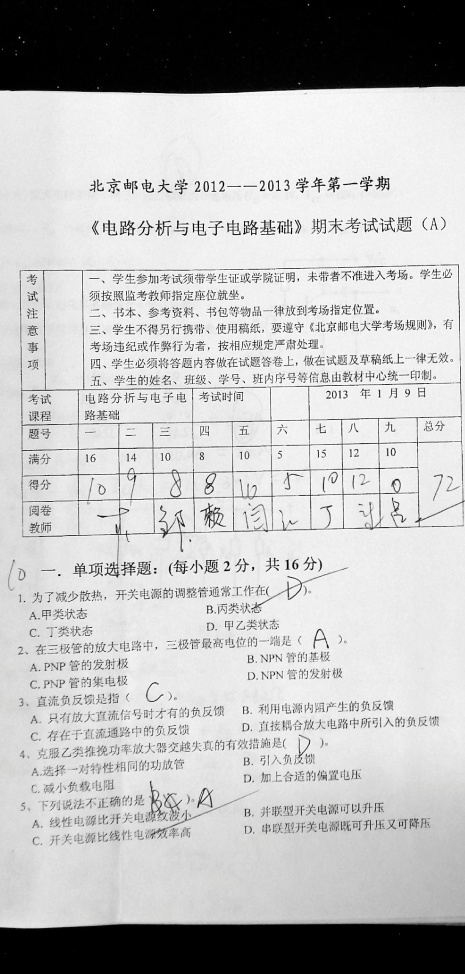 北京邮电大学2012——2013学年第一学期
《电路分析与电子电路基础》期末考试试题（A）
考试注意事项
一、学生参加考试须带学生证或学院证明，未带者不准进入考场。学生必
须按照监考教师指定座位就坐。
二、书本、参考资料、书包等物品一律放到考场指定位置。
三、学生不得另行携带、使用稿纸，要遵守《北京邮电大学考场规则》，有
考场违纪或作弊行为者，按相应规定严肃处理。
四、学生必须将答题内容做在试题答卷上，做在试题及草稿纸上一律无效。
五、学生的姓名、班级、学号、班内序号等信息由教材中心统一印制。
考试课程 电路分析与电子电路基础 考试时间 2013 年 1 月 9 日
题号 一 二 三 四 五 六 七 八 九 总分
满分 16 14 10 8 10 5 15 12 10
得分 10 9 8 8 10 5 10 12 0 72
阅卷教师 邹 赖 闫 丁
10 一. 单项选择题：(每小题 2 分，共 16 分)
1. 为了减少散热，开关电源的调整管通常工作在( D )。
A.甲类状态 B.丙类状态
C. 丁类状态 D. 甲乙类状态
2、在三极管的放大电路中，三极管最高电位的一端是（ A ）。
A. PNP 管的发射极 B. NPN 管的基极
C. PNP 管的集电极 D. NPN 管的发射极
3、直流负反馈是指（ C ）。
A. 只有放大直流信号时才有的负反馈 B. 利用电源内阻产生的负反馈
C. 存在于直流通路中的负反馈 D. 直接耦合放大电路中所引入的负反馈
4、克服乙类推挽功率放大器交越失真的有效措施是( D )。
A.选择一对特性相同的功放管 B. 引入负反馈
C. 减小负载电阻 D. 加上合适的偏置电压
5、下列说法不正确的是（ ）。A
A. 线性电源比开关电源纹波小 B. 并联型开关电源可以升压
C. 开关电源比线性电源效率高 D. 串联型开关电源既可升压又可降压